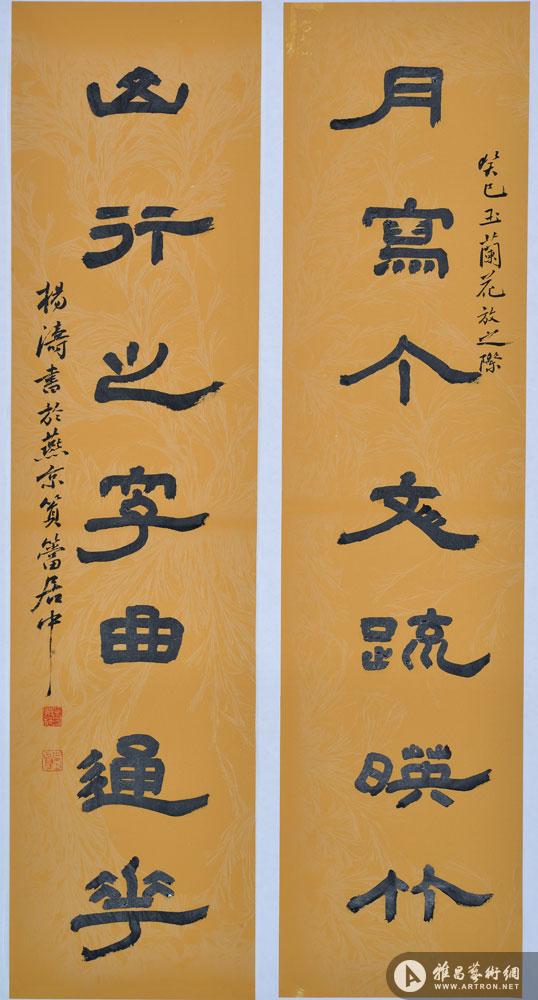 癸巳玉蘭花放之際
月寫个文疏暎竹
山行之字曲通華
楊濤書於燕京篔簹居中
雅昌藝術網
WWW.ARTRON.NET